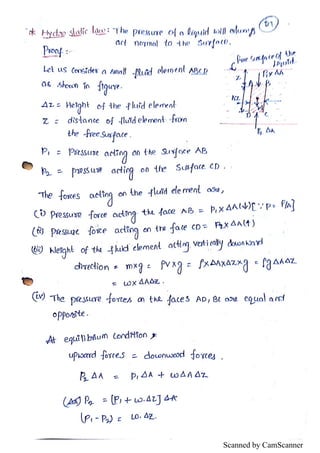 * Hydro static law:- "The pressure of a liquid will always
D1
act normal to the surface.
Proof :-
Free surface of the
liquid.
Let us consider a small fluid element ABCD
as shown in figure.
P₁ x ΔA
Z
ΔZ
ΔZ = Height of the fluid element
Z = distance of fluid element from
the free surface.
P₂ ΔA
P₁ = Pressure acting on the surface AB
P₂ = pressure acting on the surface CD.
The forces acting on the fluid element are,
(i) Pressure force acting the face AB = P₁ x ΔA (↓) [∵ P = F/A]
(ii) Pressure force acting on the face CD = P₂ x ΔA (↑)
(iii) Weight of the fluid element acting vertically downward
direction = mxg = ρVxg = ρxΔAxΔZxg = ρgΔAΔZ
= wxΔAΔZ.
(iv) The pressure forces on the faces AD, BC are equal and
opposite.
At equilibrium condition
upward forces = downward forces.
P₂ ΔA = P₁ ΔA + wΔA ΔZ
P₂ = [P₁ + w.ΔZ] ΔA
(P₁ - P₂) = w. ΔZ.
Scanned by CamScanner